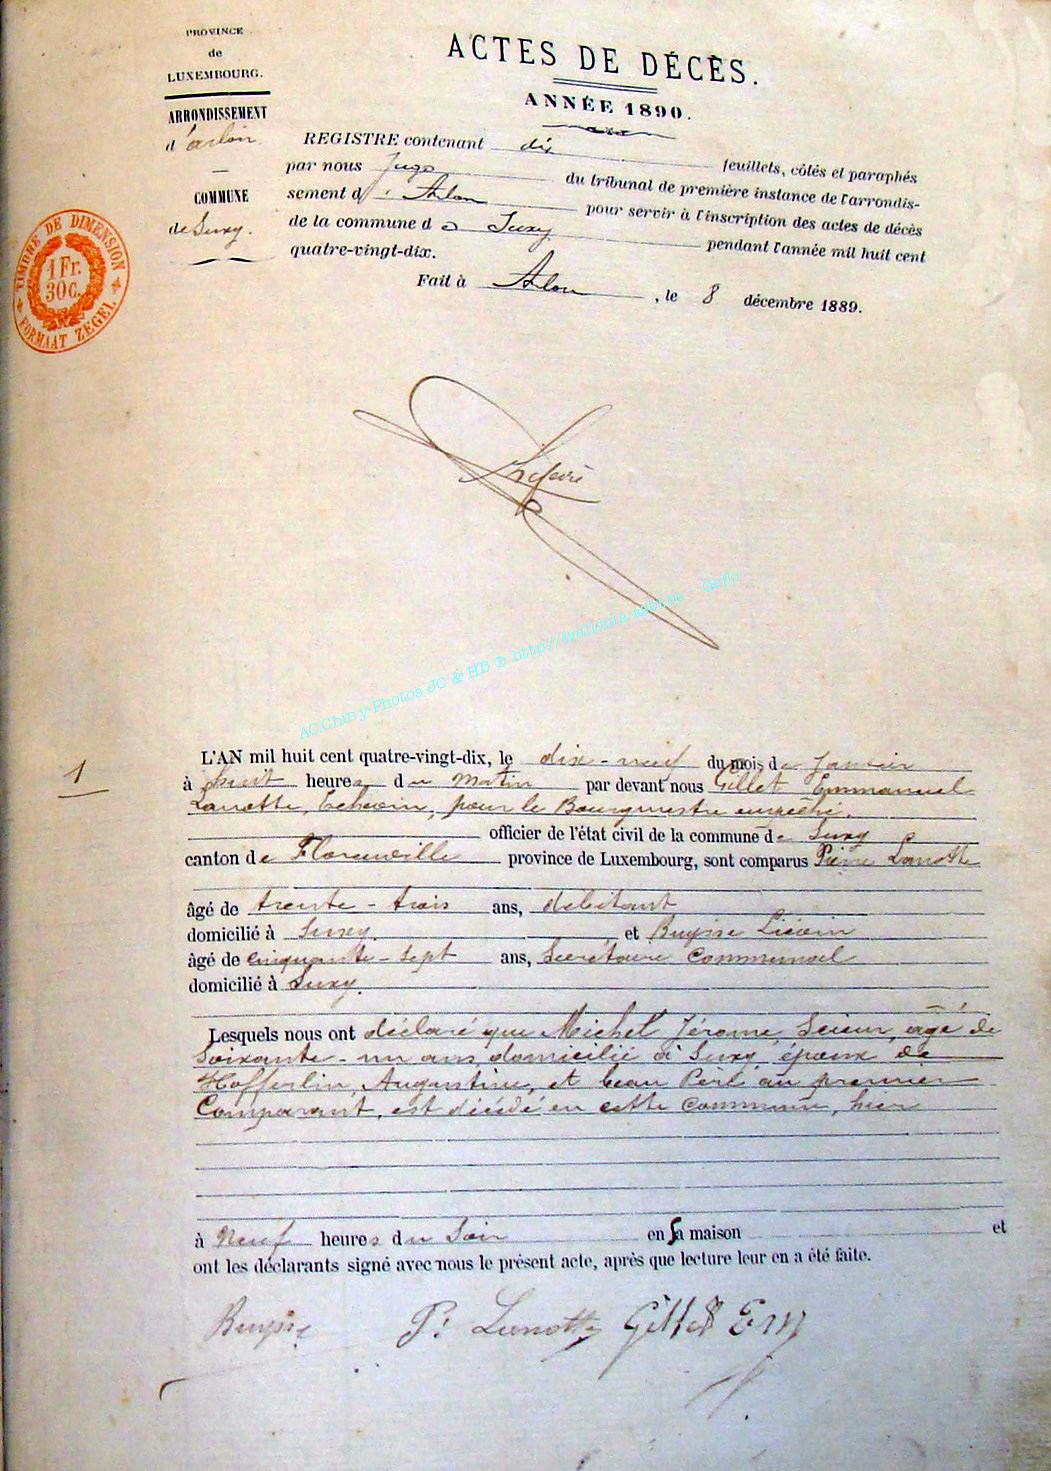 PROVINCE
de
LUXEMBOURG.
ARRONDISSEMENT
d'arlon
COMMUNE
de Suxy.
TIMBRE DE DIMENSION
1 Fr.
30c.
FORMAAT ZEGEL
ACTES DE DÉCÈS.
ANNÉE 1890.
REGISTRE contenant dix feuillets, côtés et paraphés
par nous Juge du tribunal de première instance de l'arrondis-
sement d'Arlon pour servir à l'inscription des actes de décès
de la commune de Suxy pendant l'année mil huit cent
quatre-vingt-dix.
Fait à Arlon, le 8 décembre 1889.
AC.Chiny-Photos JC & HB ©
1
L'AN mil huit cent quatre-vingt-dix, le dix-neuf du mois de Janvier
à huit heures du Matin par devant nous Gillet Emmanuel
Lanotte, Echevin, pour le Bourgmestre empêché.
officier de l'état civil de la commune de Suxy
canton de Florenville province de Luxembourg, sont comparus Pierre Lanotte
âgé de trente-trois ans, debitant
domicilié à Suxy. et Buysse
âgé de cinquante-sept ans, Secrétaire Communal
domicilié à Suxy.
Lesquels nous ont déclaré que Michel Jérome, Scieur, âgé de
Soixante-un ans, domicilié à Suxy, époux de
Hofferlin, Augustine, et beau Père au premier
Comparant, est décédé en cette commune, hier
à Neuf heures du Soir en sa maison et
ont les déclarants signé avec nous le présent acte, après que lecture leur en a été faite.
Buysse P. Lanotte Gillet Em